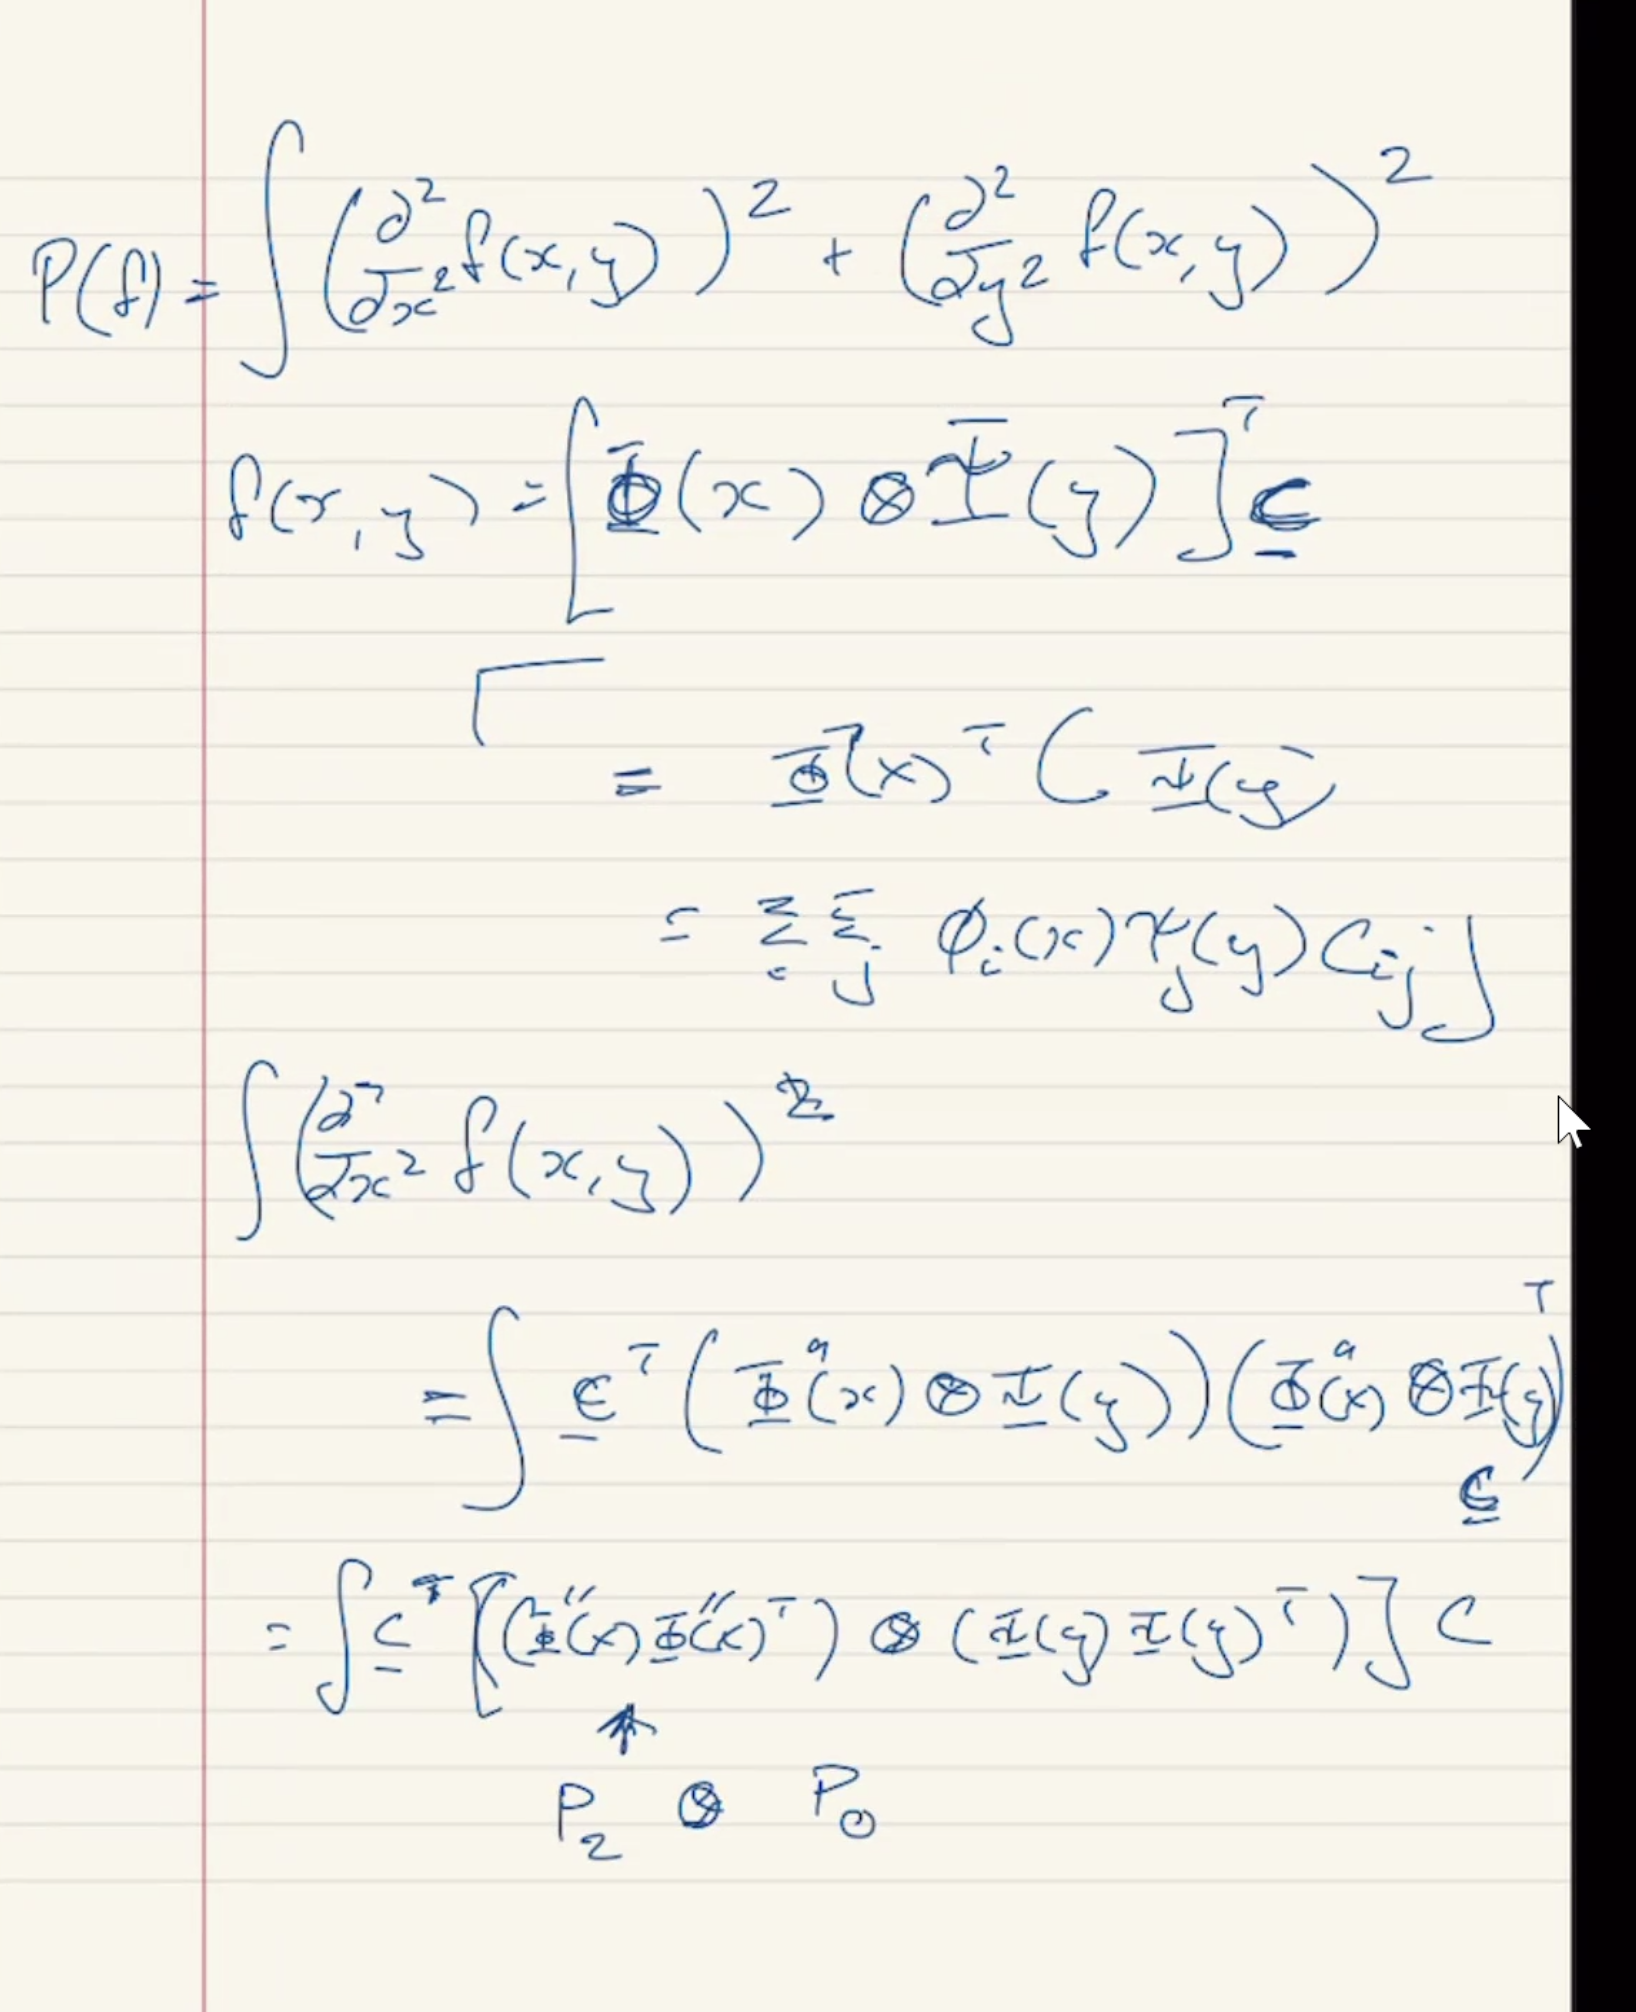 P(f) = ∫ (∂²/∂x² f(x,y))² + (∂²/∂y² f(x,y))²
f(x,y) = [Φ(x) ⊗ Ψ(y)]ᵀ c
[ = Φ(x)ᵀ C Ψ(y)
= Σᵢ Σⱼ ϕᵢ(x) ψⱼ(y) Cᵢⱼ ]
∫ (∂²/∂x² f(x,y))²
= ∫ cᵀ (Φ''(x) ⊗ Ψ(y)) (Φ''(x) ⊗ Ψ(y))ᵀ
c
= ∫ cᵀ [(Φ''(x) Φ''(x)ᵀ) ⊗ (Ψ(y) Ψ(y)ᵀ)] c
↑
P₂ ⊗ P₀